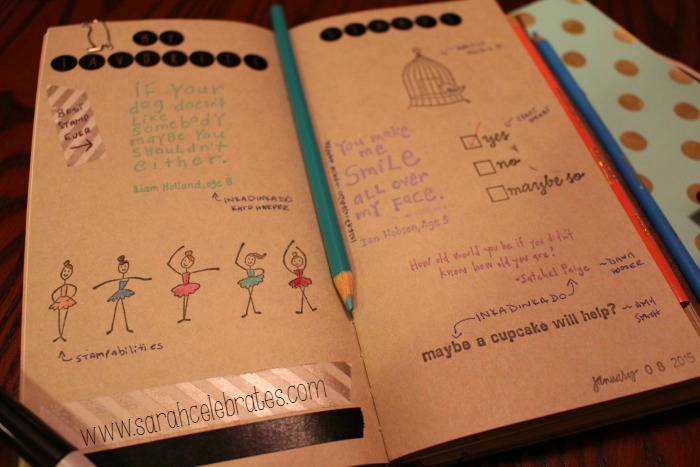 MY
FAVORITE
BEST
STAMP
EVER
if your
dog doesn't
like
somebody
maybe you
shouldn't
either.
Liam Holland, age 8
INKADINKADO
KATE HARPER
STAMPABILITIES
www.sarahcelebrates.com
STAMPS
You make
me
smile
all over
my face.
Ian Hobson, Age 5
yes
no
maybe so
How old would you be if you didn't
know how old you are?
-Satchel Paige
~DAWN
HOUSER
INKADINKADO
maybe a cupcake will help?
~AMY
SMITH
january 08 2015